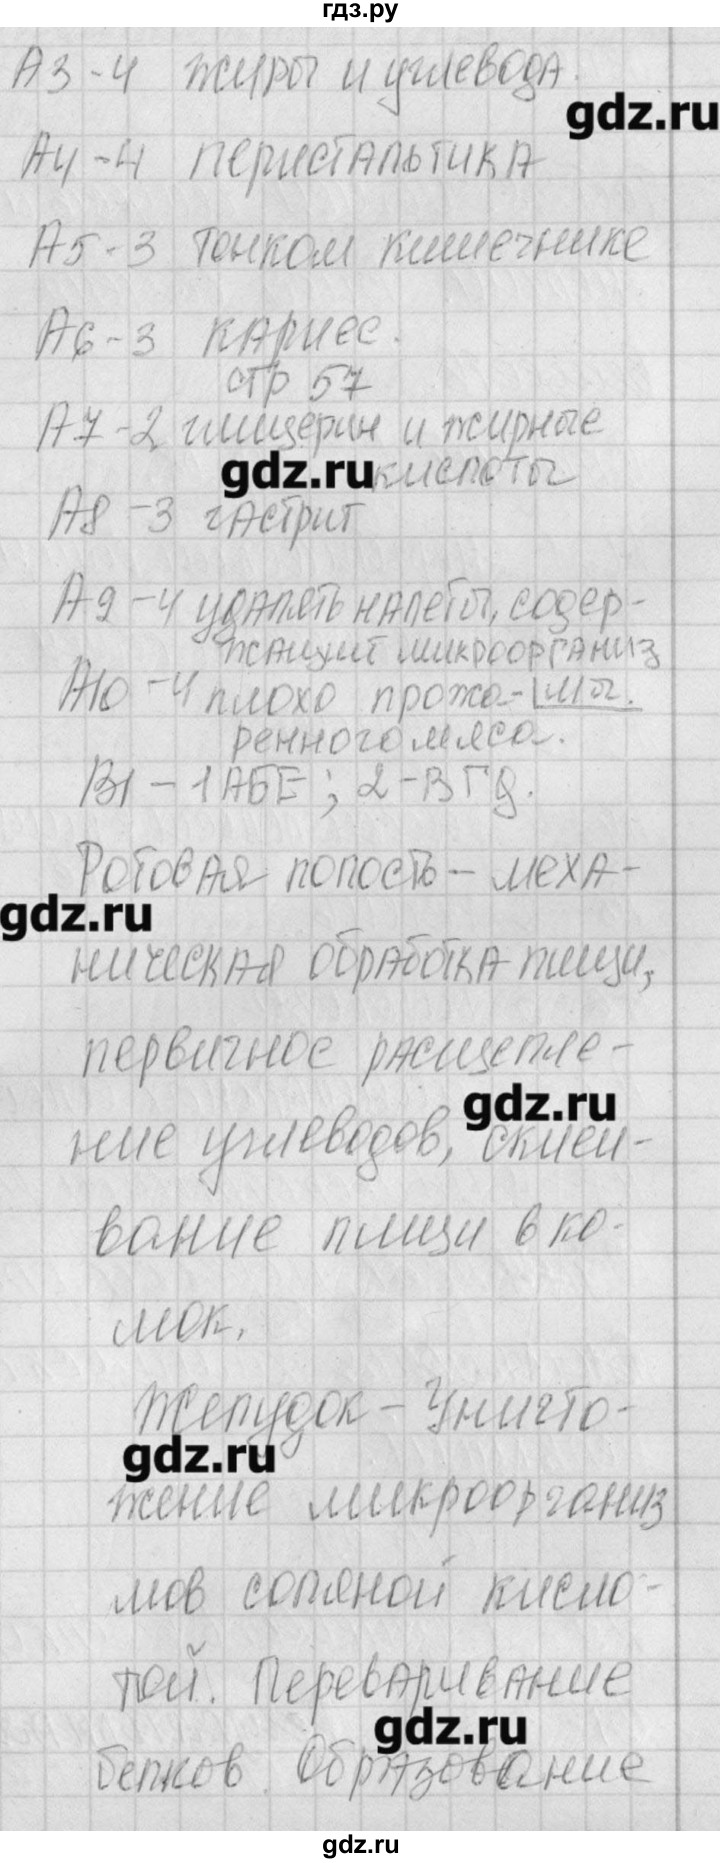 гдз.ру
А3-4 жиры и углевода.
gdz.ru
А4-4 перистальтика
А5-3 тонком кишечнике
А6-3 кариес.
стр 57
А7-2 глицерин и жирные
gdz.ru кислоты
А8-3 гастрит
А9-4 удалять налеты, содер-
жащий микроорганиз
А10-4 плохо прожа- мы.
ренного мяса.
В1-1АБЕ; 2-ВГД.
Ротовая полость - меха-
gdz.ru
ническая обработка пищи,
первичное расщепле-
gdz.ru
ние углеводов, склеи-
вание пищи в ко-
мок.
Желудок - Уничто-
gdz.ru
жение микроорганиз
мов соляной кисло-
той. Переваривание
gdz.ru
белков. Образование
gdz.ru